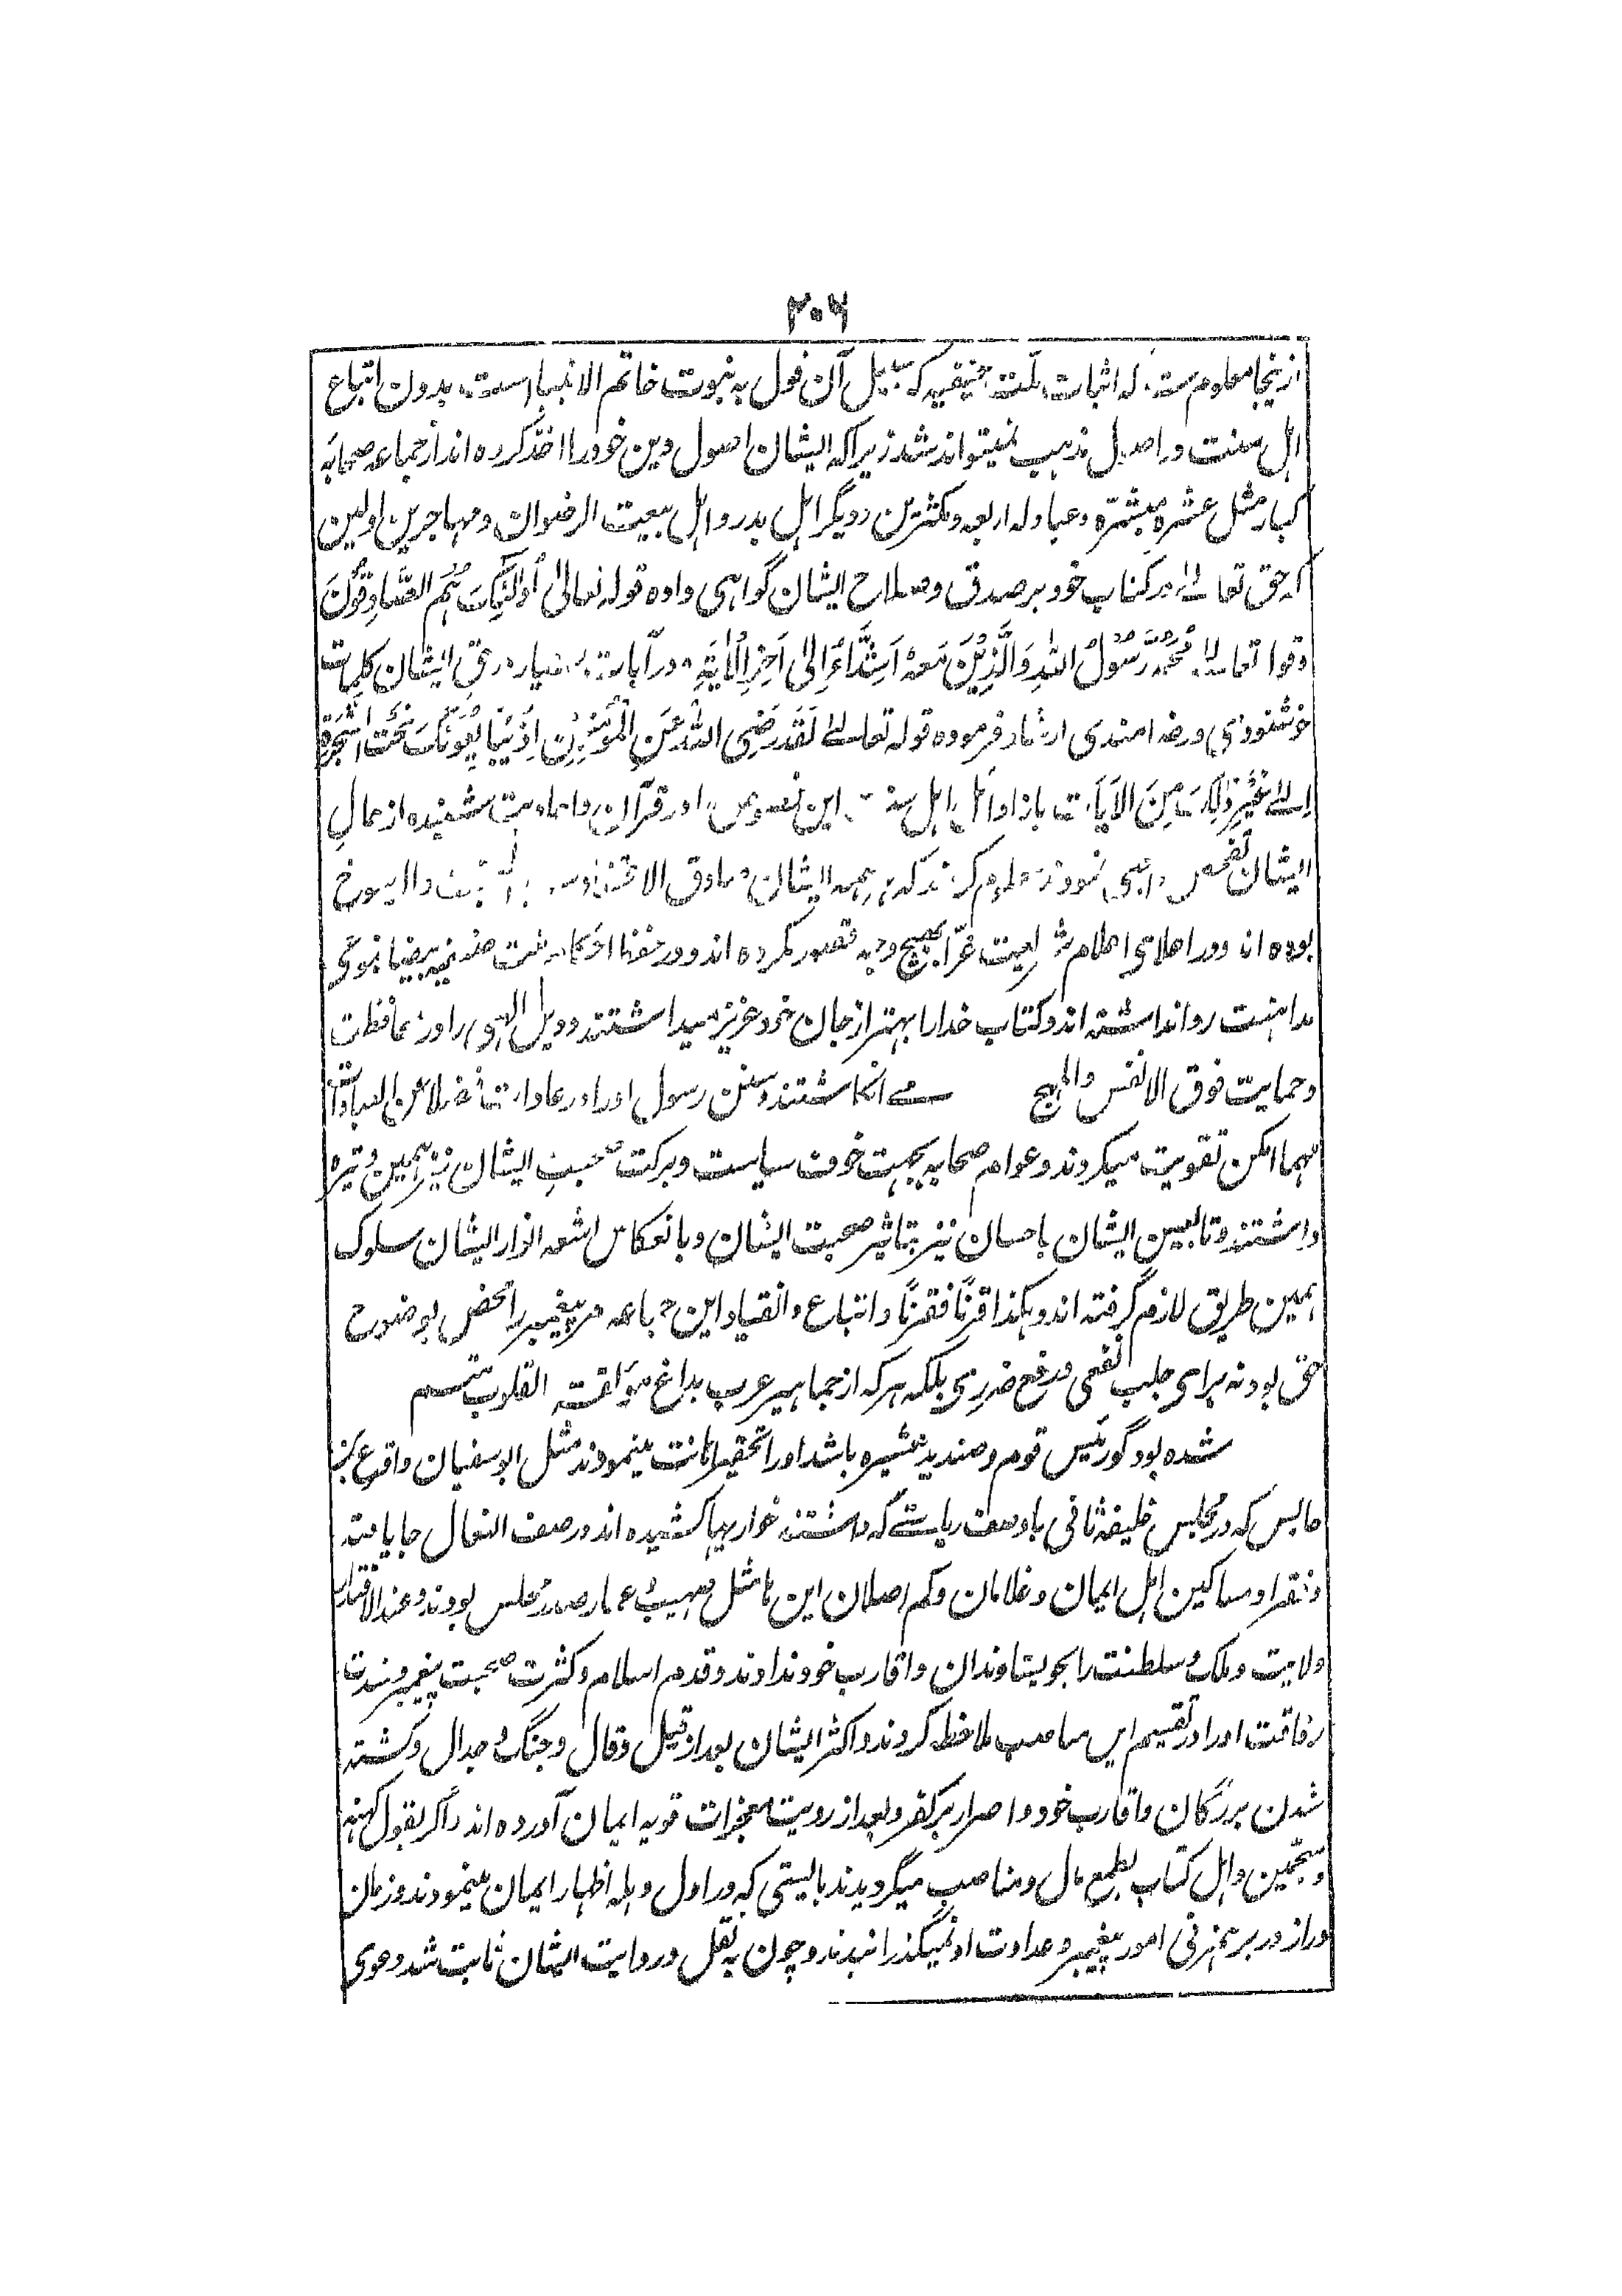 ۲۰۶
ازینجا معلوم ست که اثبات ملت حنیفیه که سبیل آن قول به نبوت خاتم الانبیا است بدون اتباع
اہل سنت و اصول مذہب نمیتواند شد زیراکه ایشان اصول دین خود را اخذ کرده اند از جماعه صحابه
کبار مثل عشره مبشره و عبادله اربعه و مکثرین و دیگر اہل بدر و اہل بیعت الرضوان و مہاجرین اولین
که حق تعالے در کتاب خود بر صدق و صلاح ایشان گواہی داده قوله تعالیٰ أُولٰئِکَ هُمُ الصَّادِقُونَ
و قوله تعالے مُحَمَّدٌ رَسُولُ اللّٰهِ وَالَّذِیْنَ مَعَهُ اَشِدَّاءُ اِلیٰ آخِرِ الْاٰیَةِ و در آیات بسیار در حق ایشان کلمات
خوشنودی و رضامندی ارشاد فرموده قوله تعالے لَقَدْ رَضِیَ اللّٰهُ عَنِ الْمُؤْمِنِیْنَ اِذْ یُبَایِعُوْنَکَ تَحْتَ الشَّجَرَةِ
اِلےٰ غَیْرِ ذٰلِکَ مِنَ الاٰیَات باز اوائل اہل سنت این نصوص در قرآن و احادیث شنیده از حالِ
ایشان تفحص واجبی نموده معلوم کردند که ہمه ایشان صادق الاعتقاد و
بوده اند و در اعلای اعلام شریعت غرّا بہیچ وجه قصور نکرده اند و در حفظ احکام ملت حنفیه بیضا نوعی
مداہنت روا نداشته اند و کتاب خدا را بہتر از جان خود عزیز میداشتند و دین الہی را در محافظت
و حمایت فوق الانفس والمہج مے انگاشتند و سنن رسول او را در عادات فضلا عن العبادات
مہما امکن تقویت میکردند و عوام صحابه بجہت خوف سیاست و برکت صحبت ایشان نیز ہمین وتیره
داشتند و تابعین ایشان باحسان نیز بتاثیر صحبت ایشان و بانعکاس اشعه انوار ایشان سلوک
ہمین طریق لازم گرفته اند و ہکذا قرنًا فقرنًا و اتباع و انقیاد این جماعه مر پیغمبر را محض بوضوح
حق بود نه برای جلب نفعی و رفع ضرری بلکه ہر که از جماہیر عرب بداغ مؤلفة القلوب متسم
شده بود گو رئیس قوم و صندید عشیره باشد او را تحقیر و اہانت مینمودند مثل ابو سفیان و اقرع بن
حابس که در مجلس خلیفه ثانی باوصف ریاستے که داشتند خواریہا کشیده اند و در صف النعال جا یافته
و فقرا و مساکین اہل ایمان و غلامان و کم اصلان این ہا مثل صہیب و عمار صدر مجلس بودند و عند الاقتدار
ولایت و ملک و سلطنت را بخویشاوندان و اقارب خود ندادند و قدم اسلام و کثرت صحبت پیغمبر و شدت
رفاقت او را در تقسیم این مناصب ملاحظه کردند و اکثر ایشان بعد از قیل و قال و جنگ و جدال و کشته
شدن بزرگان و اقارب خود و اصرار بر کفر و بعد از رویت معجزات قویه ایمان آورده اند و اگر بقول کہنه
و منجمین و اہل کتاب بطمع مال و مناصب میگرویدند بایستی که در اول وہله اظہار ایمان مینمودند و زمان
دراز در برہمزنی امور پیغمبر و عداوت او نمیگذرانیدند و چون به نقل و روایت ایشان ثابت شد دعوی